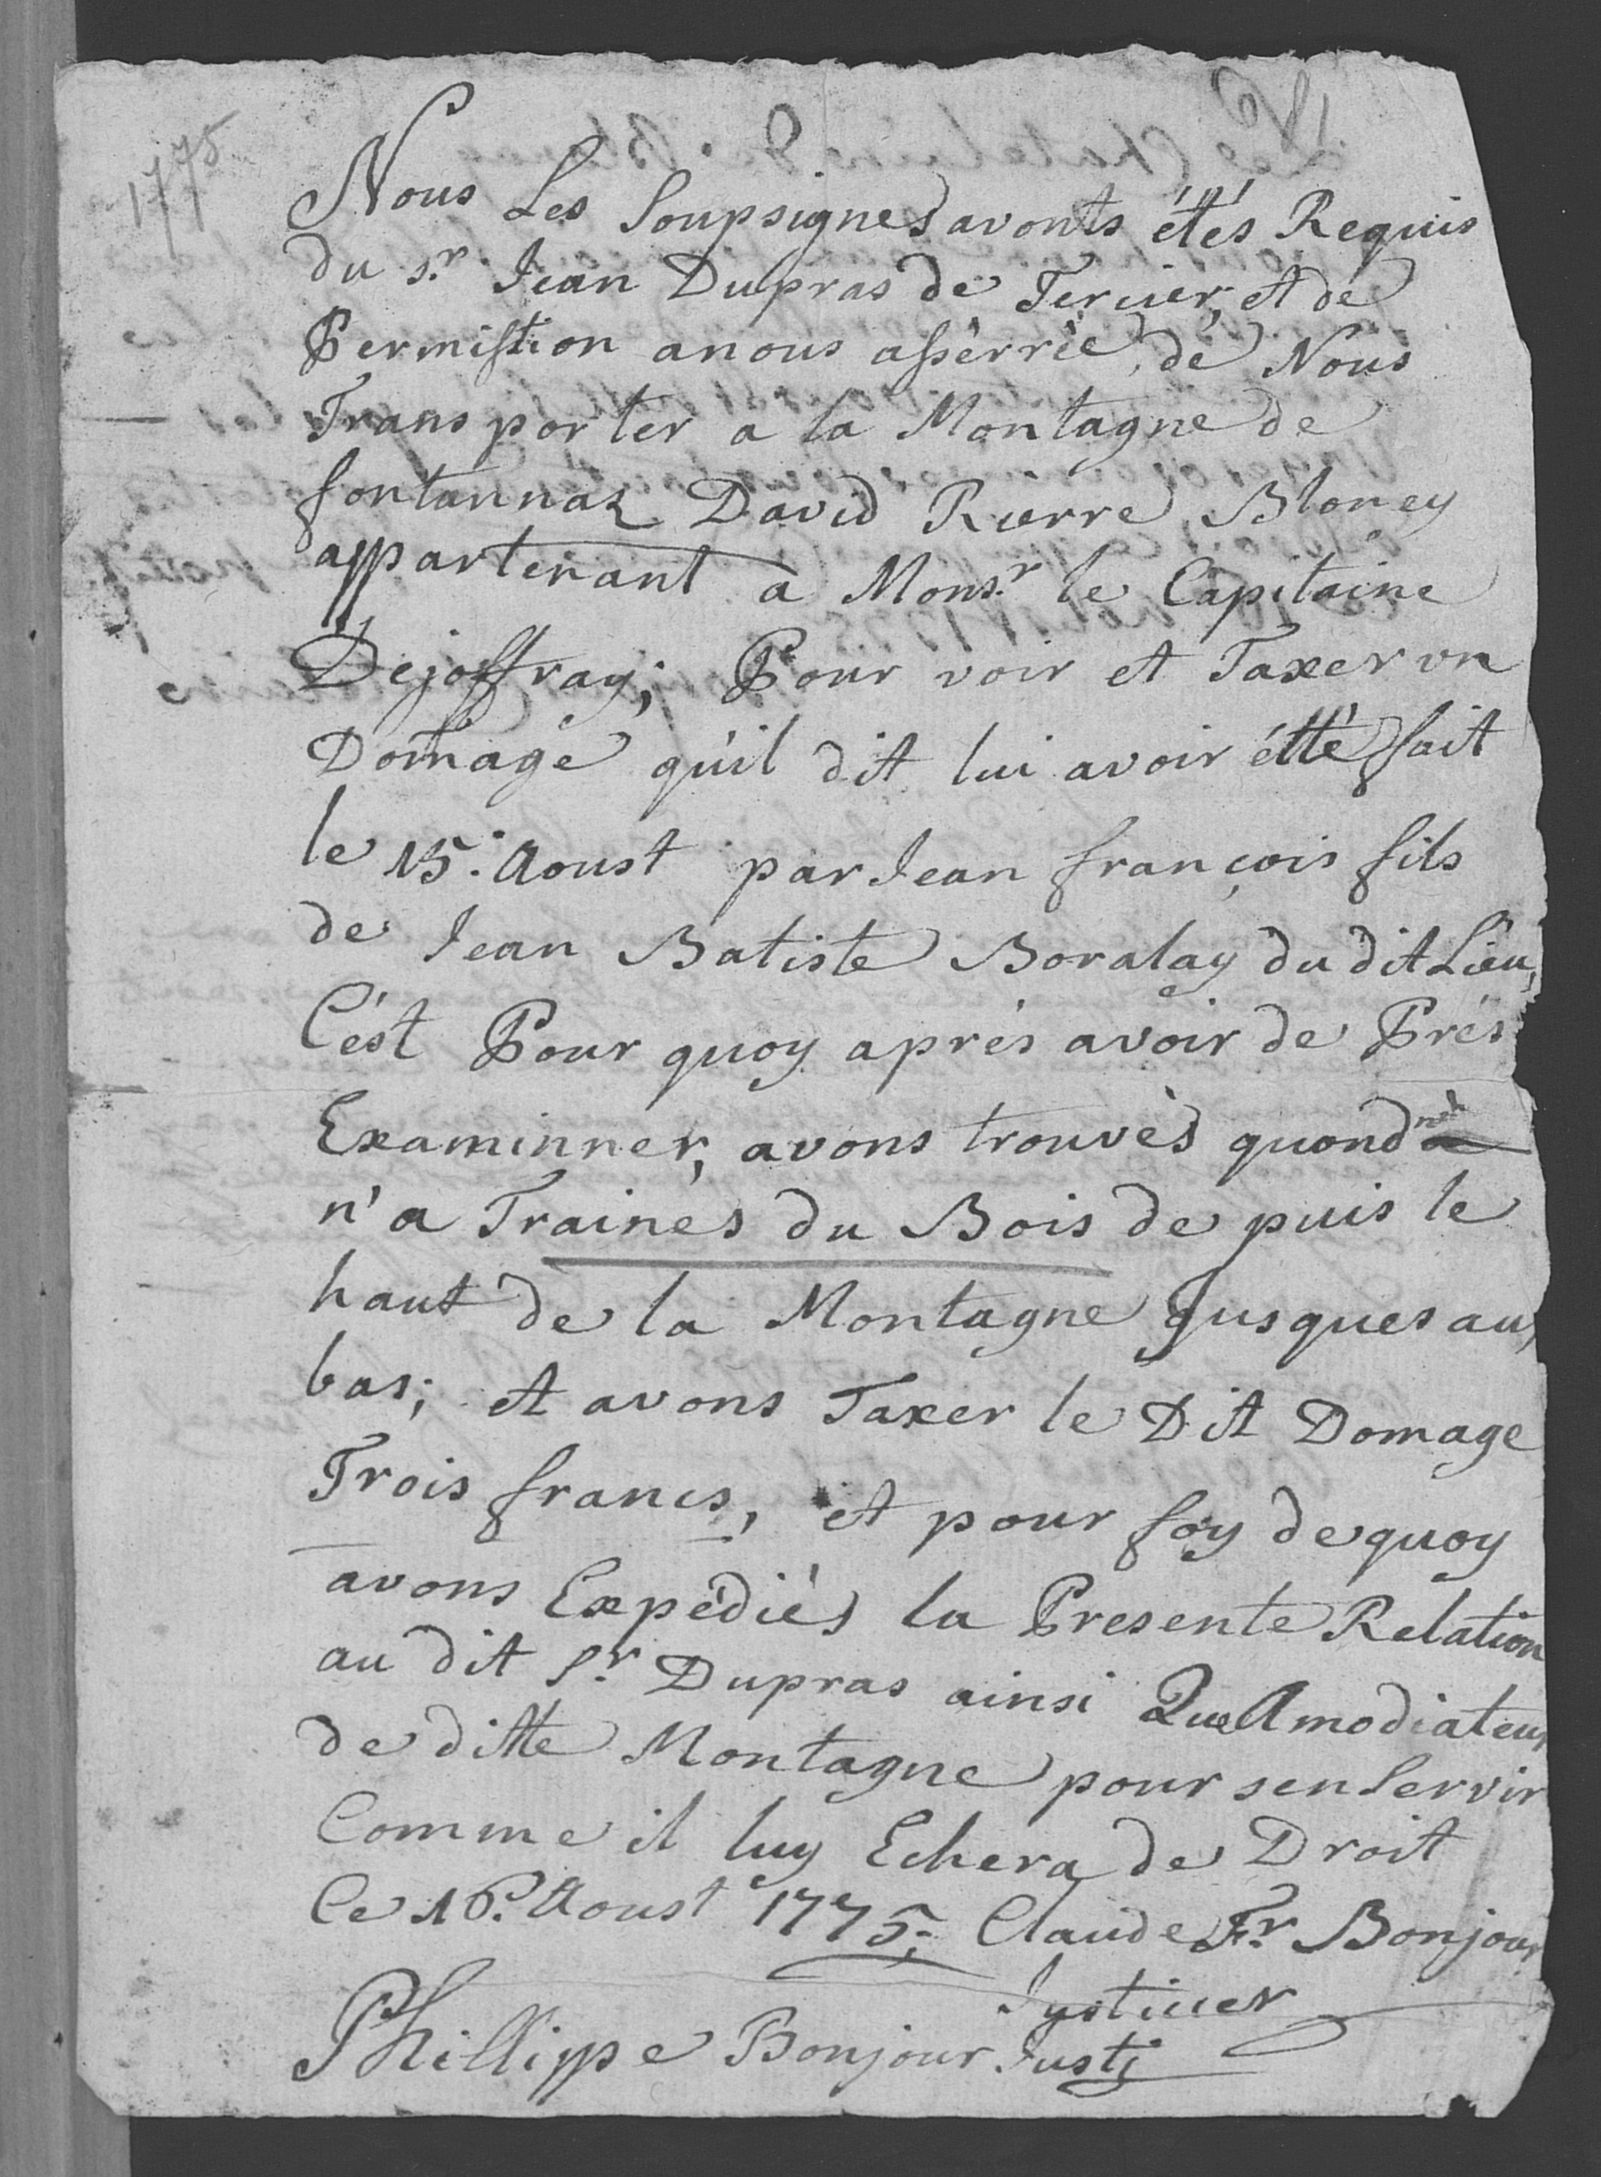 1775
Nous Les Soupsignes avonts étés Requis
du sr. Jean Dupras de Tercier, et de
Permistion a nous asserrie, de Nous
Trans porter a la Montagne de
fontannaz David Rierre Bloney
appartenant a Monsr. le Capitaine
Dejoffray; Pour voir et Taxer un
Domage qu'il dit lui avoir étté fait
le 15. Aoust par Jean françois fils
de Jean Batiste Boralay du dit Lieu,
C'ést Pour quoy aprés avoir de Prés
Examinner, avons trouvés quond
n'a Trainés du Bois de puis le
haut de la Montagne Jusques au
bas; et avons Taxer le Dit Domage
Trois francs, et pour foy de quoy
avons Expédiés la Presente Relation
au dit Sr. Dupras ainsi Que Amodiateur
de ditte Montagne pour sen Servir
Comme il luy Echera de Droit
Ce 16. Aoust 1775; Claude Fr. Bonjour
Justicier
Phillippe Bonjour Justi